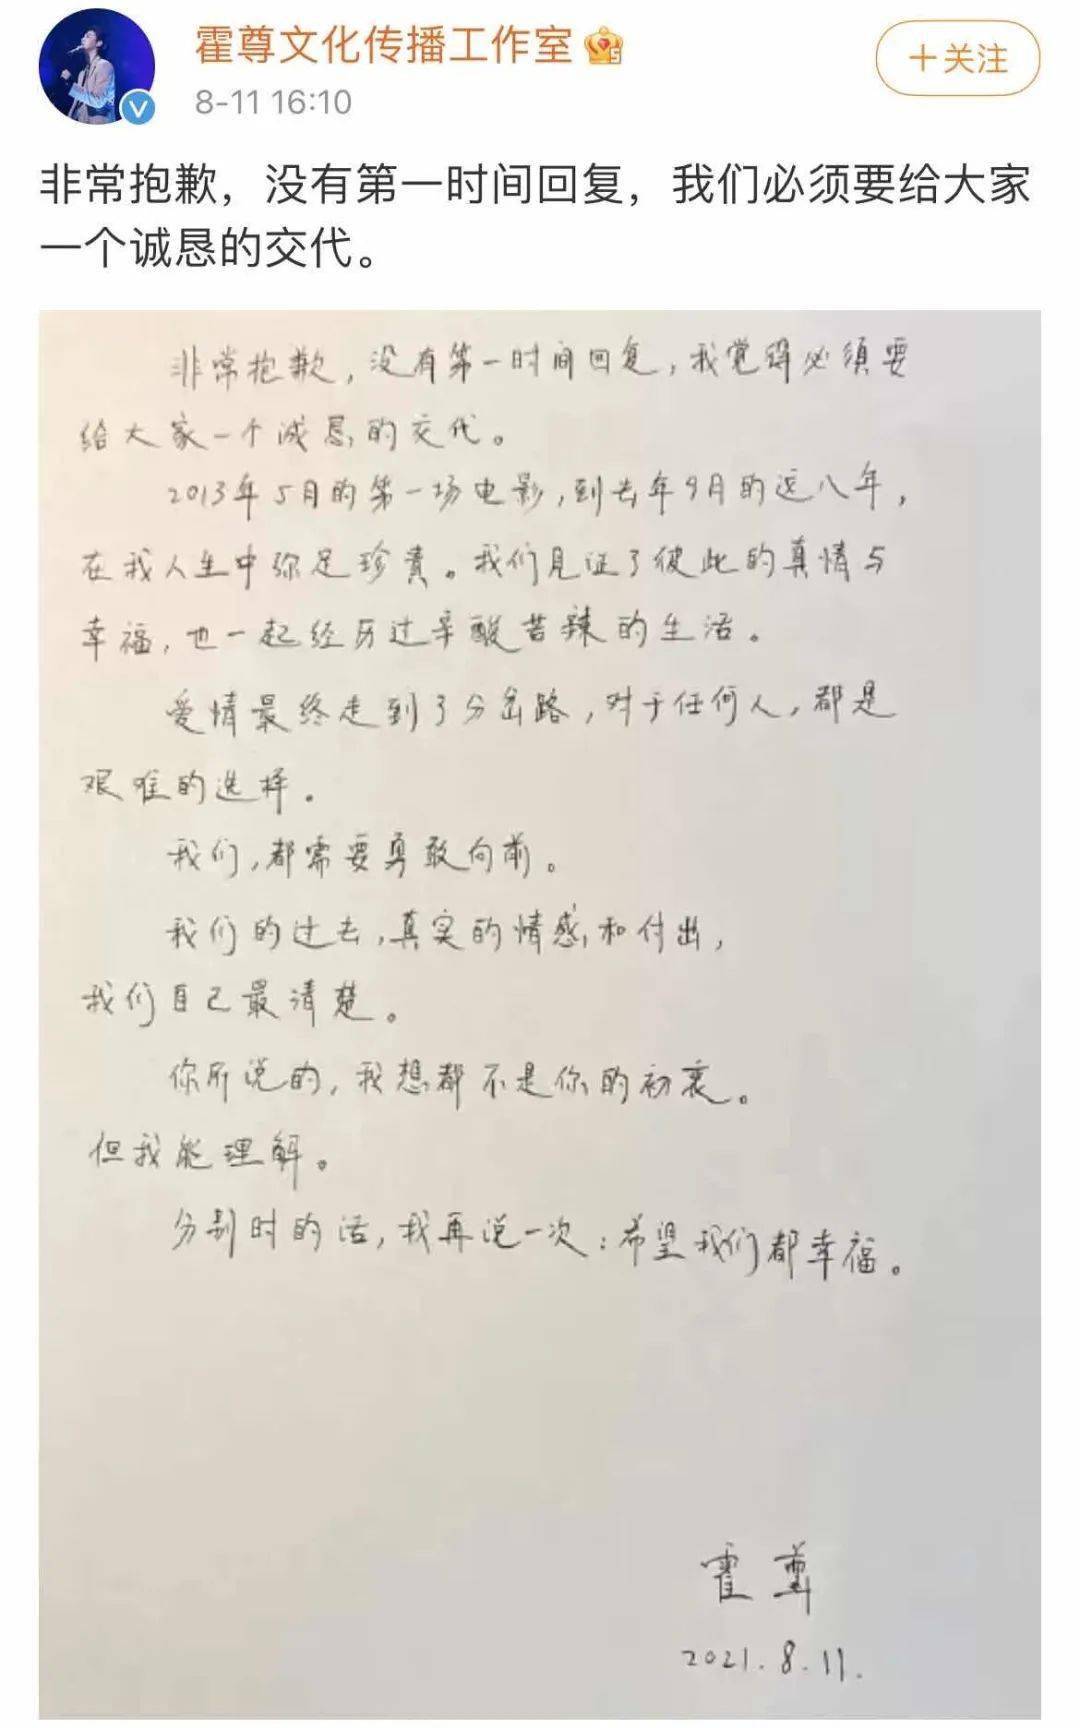 霍尊文化传播工作室
8-11 16:10
+关注
非常抱歉，没有第一时间回复，我们必须要给大家
一个诚恳的交代。
非常抱歉，没有第一时间回复，我觉得必须要
给大家一个诚恳的交代。
2013年5月的第一场电影，到去年9月的这八年，
在我人生中弥足珍贵。我们见证了彼此的真情与
幸福，也一起经历过辛酸苦辣的生活。
爱情最终走到了分岔路，对于任何人，都是
艰难的选择。
我们，都需要勇敢向前。
我们的过去，真实的情感和付出，
我们自己最清楚。
你所说的，我想都不是你的初衷。
但我能理解。
分别时的话，我再说一次：希望我们都幸福。
霍尊
2021.8.11.